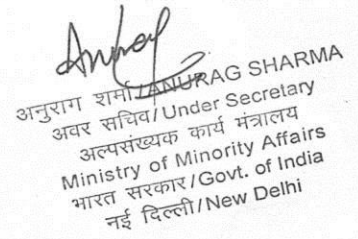 अनुराग शर्मा/ANURAG SHARMA
अवर सचिव/Under Secretary
अल्पसंख्यक कार्य मंत्रालय
Ministry of Minority Affairs
भारत सरकार/Govt. of India
नई दिल्ली/New Delhi